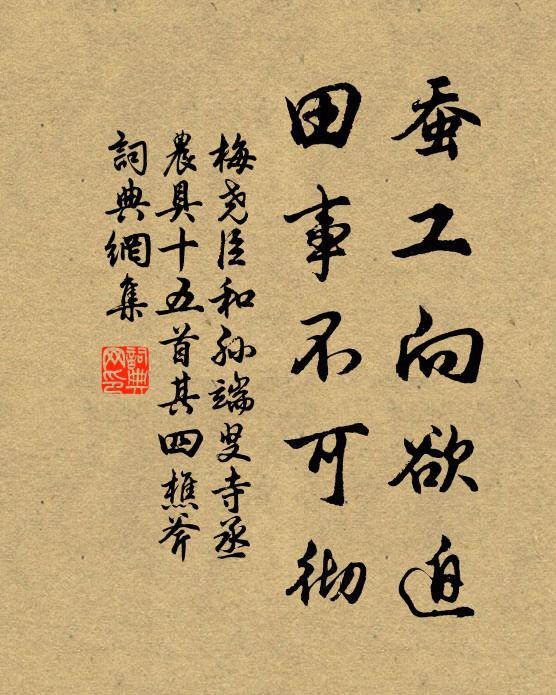 蚕工向欲迫
田事不可彻
梅尧臣和孙端叟寺丞
農具十五首其四樵斧
詞典網集
詞典网印